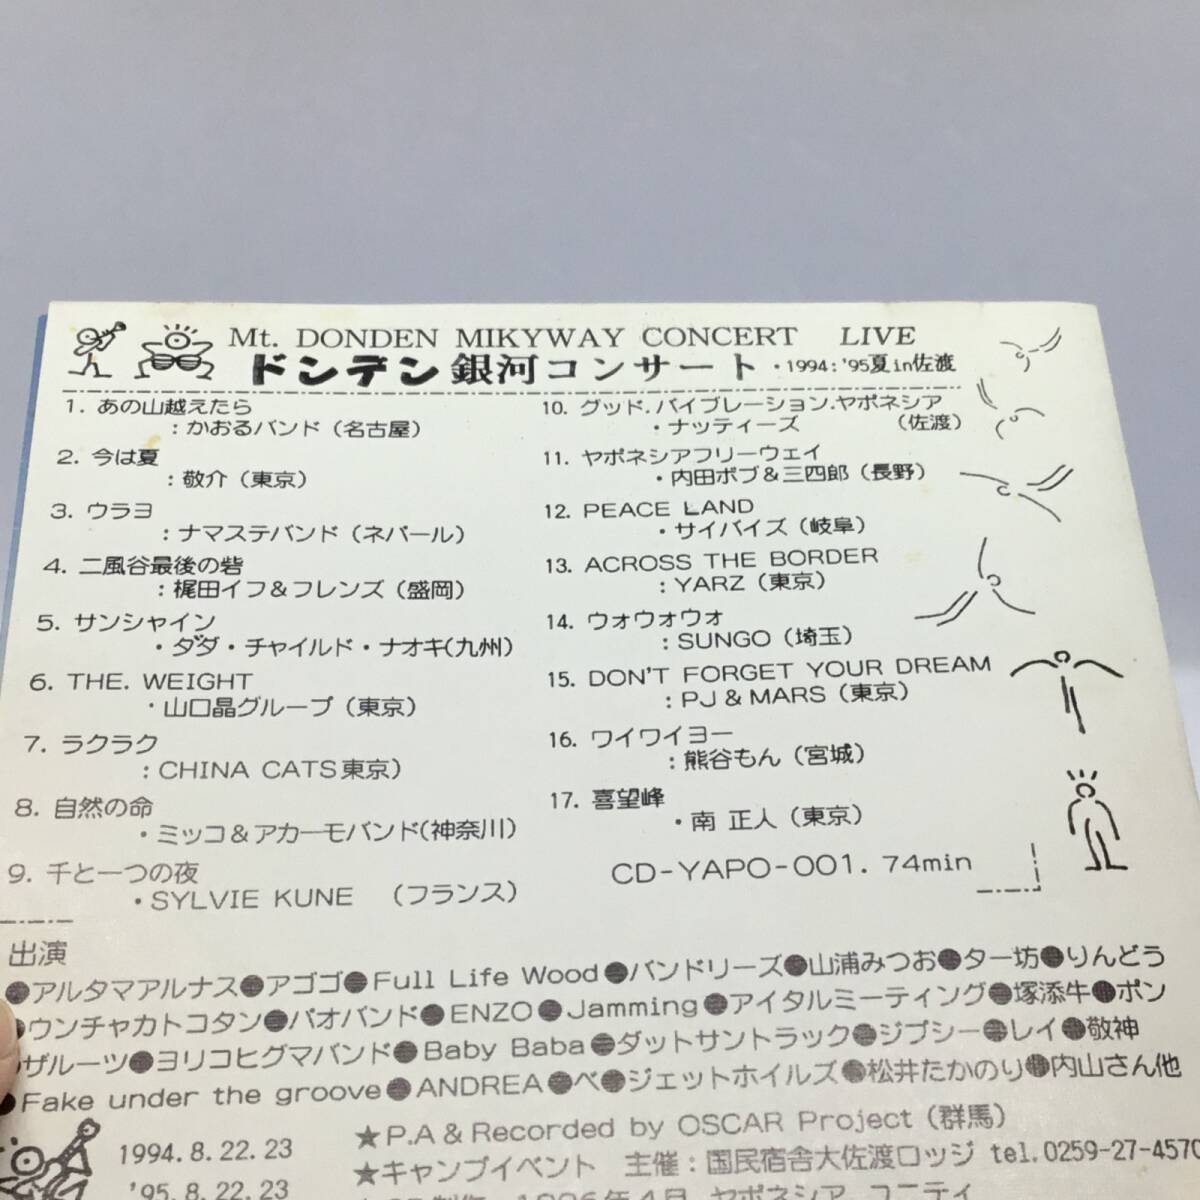 Mt. DONDEN MIKYWAY CONCERT LIVE
ドンデン銀河コンサート・1994:'95夏in佐渡
1. あの山越えたら
:かおるバンド(名古屋)
2. 今は夏
:敬介(東京)
3. ウラヨ
:ナマステバンド(ネパール)
4. 二風谷最後の砦
:梶田イフ&フレンズ(盛岡)
5. サンシャイン
・ダダ・チャイルド・ナオキ(九州)
6. THE. WEIGHT
・山口晶グループ(東京)
7. ラクラク
:CHINA CATS東京)
8. 自然の命
・ミッコ&アカーモバンド(神奈川)
9. 千と一つの夜
・SYLVIE KUNE (フランス)
10. グッド.バイブレーション.ヤポネシア
・ナッティーズ (佐渡)
11. ヤポネシアフリーウェイ
・内田ボブ&三四郎(長野)
12. PEACE LAND
・サイバイズ(岐阜)
13. ACROSS THE BORDER
:YARZ(東京)
14. ウォウォウォ
:SUNGO(埼玉)
15. DON'T FORGET YOUR DREAM
:PJ&MARS(東京)
16. ワイワイヨー
:熊谷もん(宮城)
17. 喜望峰
・南 正人(東京)
CD-YAPO-001. 74min
出演
●アルタマアルナス●アゴゴ●Full Life Wood●バンドリーズ●山浦みつお●ター坊●りんどう
●ウンチャカトコタン●バオバンド●ENZO●Jamming●アイタルミーティング●塚添牛●ポン
ザルーツ●ヨリコヒグマバンド●Baby Baba●ダットサントラック●ジプシー●レイ●敬神
●Fake under the groove●ANDREA●ベ●ジェットホイルズ●松井たかのり●内山さん他
1994.8.22.23
'95.8.22.23
★P.A&Recorded by OSCAR Project(群馬)
★キャンプイベント 主催:国民宿舎大佐渡ロッジ tel.0259-27-4570
1996年4月 ヤポネシア